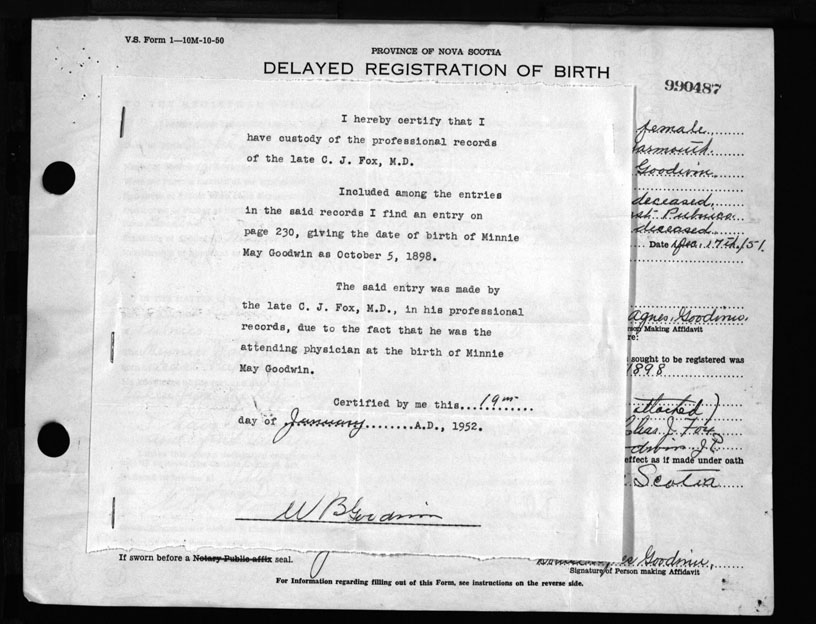 V.S. Form 1—10M-10-50
PROVINCE OF NOVA SCOTIA
DELAYED REGISTRATION OF BIRTH
990487
I hereby certify that I
have custody of the professional records
of the late C. J. Fox, M.D.
Included among the entries
in the said records I find an entry on
page 230, giving the date of birth of Minnie
May Goodwin as October 5, 1898.
The said entry was made by
the late C. J. Fox, M.D., in his professional
records, due to the fact that he was the
attending physician at the birth of Minnie
May Goodwin.
Certified by me this...19th.......
day of January........A.D., 1952.
W B Goodwin
female
armouth
Goodwin
deceased
Pubnico
deceased
Date Dec. 17th/51.
Agnes Goodwin.
son Making Affidavit
re:
sought to be registered was
1898
attached)
Chas. J. Fox
dwin J.P.
effect as if made under oath
Scotia
If sworn before a Notary Public affix seal.
Goodwin
Signature of Person making Affidavit
For Information regarding filling out of this Form, see instructions on the reverse side.